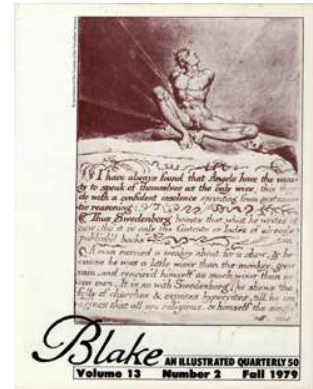 I have always found that Angels have the vani-
ty to speak of themselves as the only wise; this they
do with a confident insolence sprouting from systematic
tic reasoning:
Thus Swedenborg boasts that what he writes is
new; tho' it is only the Contents or Index of already
publish'd books
A man carried a monkey about for a shew, & be-
cause he was a little wiser than the monkey, grew
vain, and conciev'd himself as much wiser than se-
ven men. It is so with Swedenborg; he shews the
folly of churches & exposes hypocrites, till he im-
agines that all are religious, & himself the single
Blake
AN ILLUSTRATED QUARTERLY 50
Volume 13 Number 2 Fall 1979